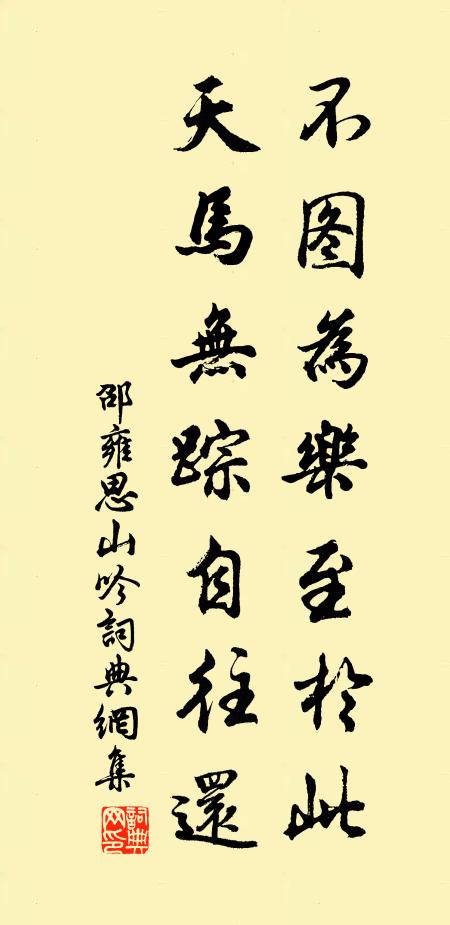 不图為樂至於此
天馬無踪自往還
邵雍思山吟詞典網集
詞典网印